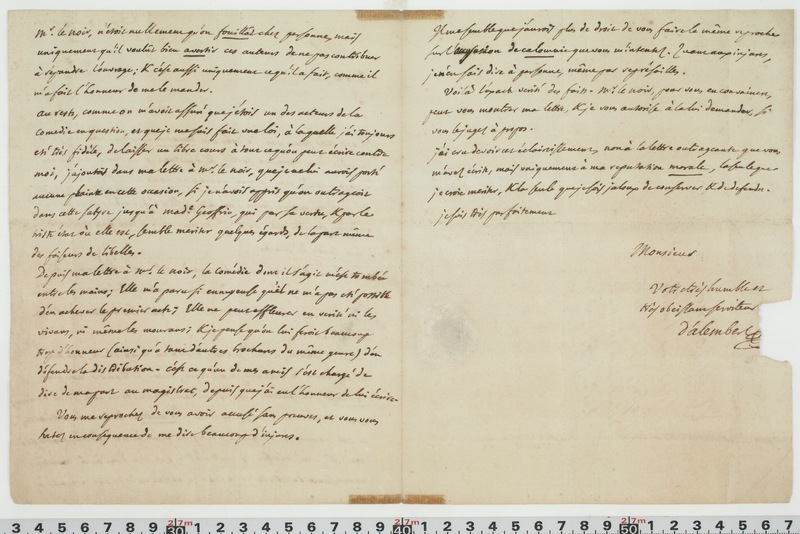 Mr. le noir, n'étoit nullement qu'on fouillât chez personne, mais
uniquement qu'il voulût bien avertir ces auteurs de ne pas contribuer
à répandre l'ouvrage; & c'est aussi uniquement ce qu'il a fait, comme il
m'a fait l'honneur de me le mander.
au reste, comme on m'avoit assuré que j'étois un des acteurs de la
comédie en question, et que je me suis fait une loi, à laquelle j'ai toujours
été très fidèle, de laisser un libre cours à tout ce qu'on peut écrire contre
moi, j'ajoutois dans ma lettre à Mr. le noir, que je ne lui aurois porté
aucune plainte en cette occasion, si je n'avois appris qu'on outrageoit
dans cette satyre jusqu'à made Geoffrin, qui par ses vertus, & par le
triste état où elle est, semble meriter quelques égards, de la part même
des faiseurs de libelles.
Depuis ma lettre à Mr. le noir, la comédie dont il s'agit m'est tombée
entre les mains; Elle m'a paru si ennuyeuse qu'il ne m'a pas été possible
d'en achever le premier acte; Elle ne peut effleurer en vérité ni les
vivans, ni même les mourans; & je pense qu'on lui feroit beaucoup
trop d'honneur (ainsi qu'à tant d'autres brochures du même genre) d'en
défendre la distribution. C'est ce qu'un de mes amis s'est chargé de
dire de ma part au magistrat, depuis que j'ai eu l'honneur de lui écrire.
Vous me reprochez de vous avoir accusé sans preuves, et vous vous
hatez en conséquence de me dire beaucoup d'injures.
Il me semble que j'aurois plus de droit de vous faire le même reproche
sur l'accusation de calomnie que vous m'intentez. Quant aux injures,
je n'en sais dire à personne, même par représailles.
Voilà l'exacte verité des faits. Mr. le noir, pour vous en convaincre,
peut vous montrer ma lettre, & je vous autorise à la lui demander, si
vous le jugez à propos.
j'ai cru devoir cet éclaircissement, non à la lettre outrageante que vous
m'avez écrite, mais uniquement à ma reputation morale, la seule que
je croie meriter, & la seule que je sois jaloux de conserver & de defendre.
je suis très parfaitement
Monsieur
Votre très humble et
très obeissant serviteur
D'alembert
3 4 5 6 7 8 9 27m 30 1 2 3 4 5 6 7 8 9 40 1 2 3 4 5 6 7 8 9 27m 50 1 2 3 4 5 6 7